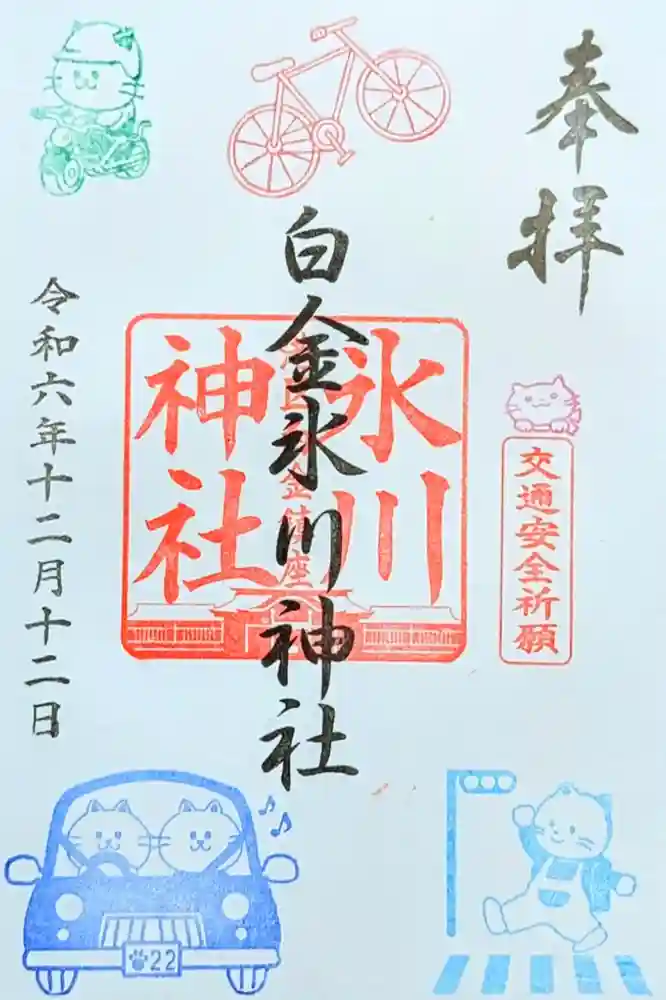 奉拝
白金氷川神社
氷川
神社
金鎮座
交通安全祈願
令和六年十二月十二日
22